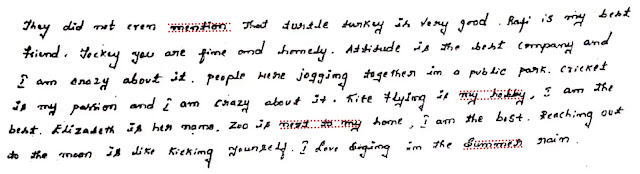 They did not even mention that turtle turkey is very good. Rafi is my best
friend. Jockey you are fine and homely. Attitude is the best company and
I am crazy about it. people were jogging together in a public park. Cricket
is my passion and I am crazy about it. Kite flying is my hobby, I am the
best. Elizabeth is her name. Zoo is next to my home, I am the best. Reaching out
to the moon is like kicking yourself. I love singing in the summer rain.